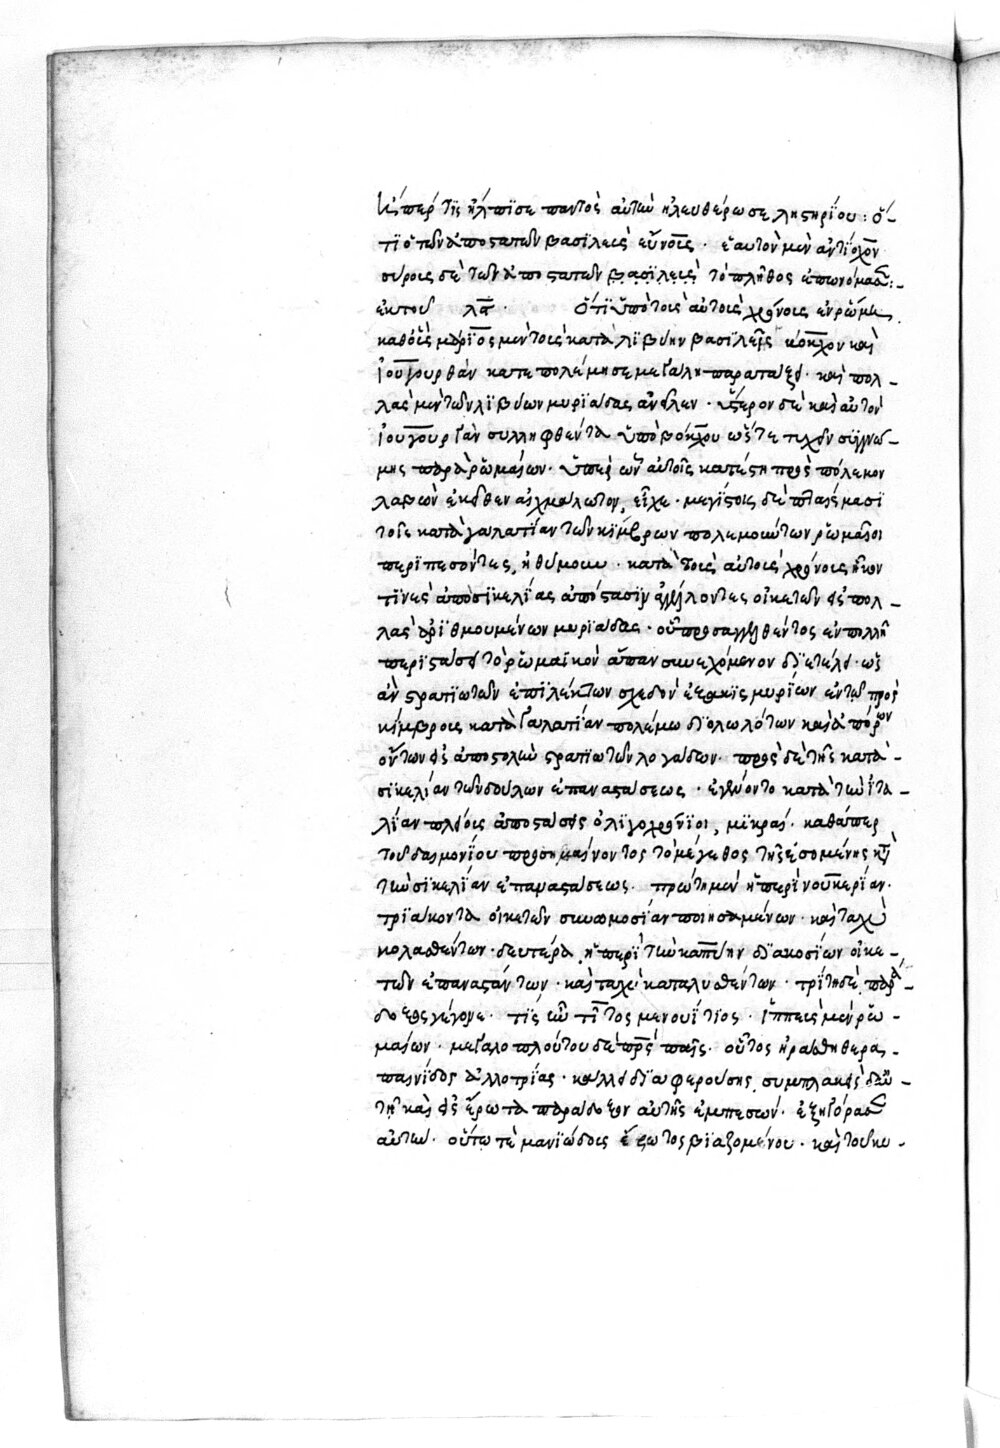 κ̓άπερ τις ἤλπισε παντὸς αὐτὴν ἠλευθέρωσε ληστηρίου: ὅ-
τι ὁ τῶν ἀποστατῶν βασιλεὺς εὔνους. ἑαυτὸν μὲν ἀντίοχον
σύρους δὲ τῶν ἀποστατῶν βασιλεὺς τὸ πλῆθος ἐπωνόμασε:-
ἐκ τοῦ λς. Ὅτι ὑπὸ τοὺς αὐτοὺς χρόνους ἐν ῥώμη.
καθ' οὓς μάριος μὲν τοὺς κατὰ λιβύην βασιλεῖς κόκχον καὶ
ἰουγουρθὰν κατεπολέμησε μεγάλη παρατάξει. καὶ πολ-
λὰς μὲν τῶν λιβύων μυριάδας ἀνεῖλεν. ὕστερον δὲ καὶ αὐτὸν
ἰουγουργὰν συλληφθέντα ὑπὸ βόκχου ὥστε τυχεῖν συγγνώ-
μης παρὰ ῥωμαίων. ὑπὲρ ὧν αὐτοῖς κατέστη πρὸς πόλεμον
λαβὼν ἐκεῖθεν αἰχμάλωτον, εἶχε. μεγίστοις δὲ πταίσμασι
τοῖς κατὰ γαλατίαν τῶν κίμβρων πολεμούντων ῥωμαῖοι
περιπεσόντες, ἠθύμουν. κατὰ τοὺς αὐτοὺς χρόνους ἧκον
τινὲς ἀπὸ σικελίας ἀπόστασιν ἀγγέλλοντες οἰκετῶν εἰς πολ-
λὰς ἀριθμουμένων μυριάδας. οὗ προσαγγελθέντος ἐν πολλῆ
περιστάσει τὸ ῥωμαικὸν ἅπαν συνεχόμενον διετέλει. ὡς
ἂν στρατιωτῶν ἐπιλέκτων σχεδὸν ἑξακις μυρίων ἐν τῶ πρὸς
κίμβρους κατὰ γαλατίαν πολέμω διολωλότων καὶ ἀπόρων
ὄντων εἰς ἀποστολὴν στρατιωτῶν λογάδων. πρὸς δὲ τῆς κατὰ-
σικελίαν τῶν δούλων ἐπαναστάσεως. ἐγένοντο κατὰ τὴν ἰτα-
λίαν πλείους ἀποστάσεις ὀλιγοχρόνιοι, μικραί. καθάπερ
τοῦ δαιμονίου προσημαίνοντος τὸ μέγεθος τῆς ἐσομένης κατὰ
τὴν σικελίαν ἐπαναστάσεως. πρώτη μὲν ἡ περὶ νουκερίαν.
τριάκοντα οἰκετῶν συνωμοσίαν ποιησαμένων. καὶ ταχὺ
κολασθέντων. δευτέρα ἡ περὶ τὴν καπύην διακοσίων οἰκε-
τῶν ἐπαναστάντων. καὶ ταχὺ καταλυθέντων. τρίτη δὲ παρά-
δοξος γέγονε. τις ὢν τίτος μενουίτιος. ἱππεὺς μὲν ῥω-
μαίων. μεγαλοπλούτου δὲ πρς παῖς. οὗτος ἠράσθη θερα-
παινίδος ἀλλοτρίας. κάλλει διαφερούσης συμπλακεὶς δ' αὐ-
τῆ καὶ εἰς ἔρωτα παράδοξον αὐτῆς ἐμπεσών. ἐξηγόρασε
αὐτήν. οὕτω τε μανιώδους ἔρωτος βιαζομένου. καὶ τοῦ κυ-